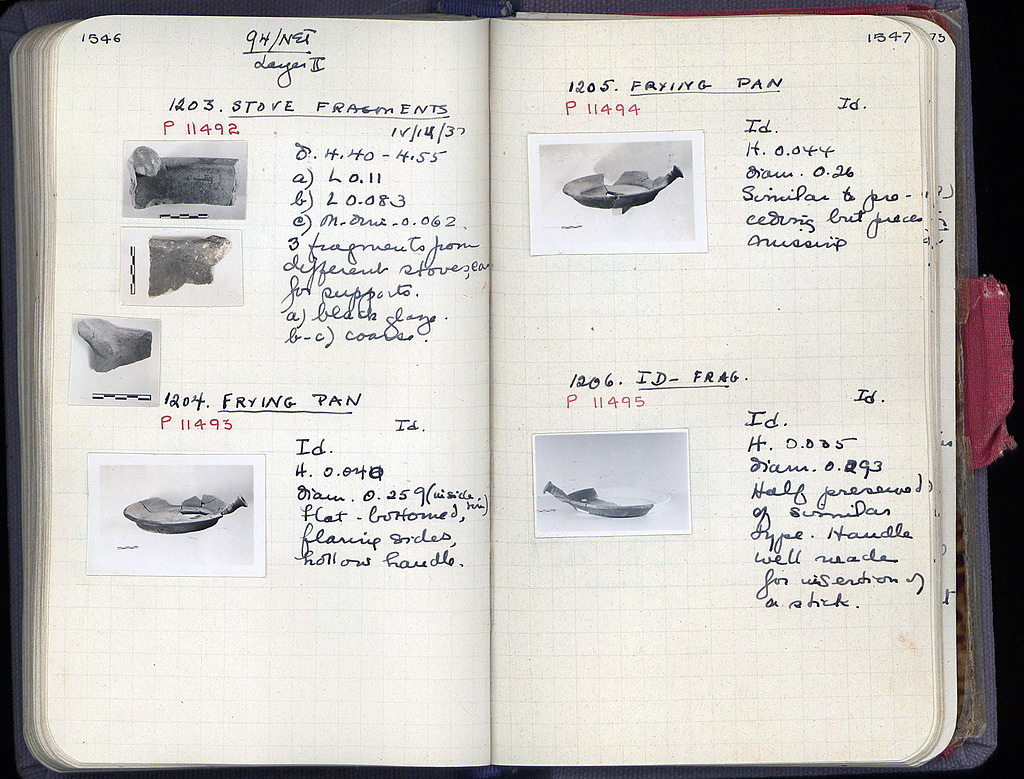 1546
94/ΝΣΤ
Layer II
1203. STOVE FRAGMENTS
P 11492
IV/14/37
δ. 4.40 - 4.55
a) L 0.11
b) L 0.083
c) M. dim. 0.062.
3 fragments from
different stoves, ea
for supports.
a) black glaze.
b-c) coarse.
1204. FRYING PAN
P 11493
Id.
Id.
H. 0.040
diam. 0.259 (inside rim)
Flat-bottomed,
flaring sides,
hollow handle.
1547
75
1205. FRYING PAN
P 11494
Id.
Id.
H. 0.044
diam. 0.26
Similar to pre-
ceding but pieces
missing
1206. ID - FRAG.
P 11495
Id.
Id.
H. 0.035
diam. 0.293
Half preserved
of similar
type. Handle
well made
for insertion of
a stick.